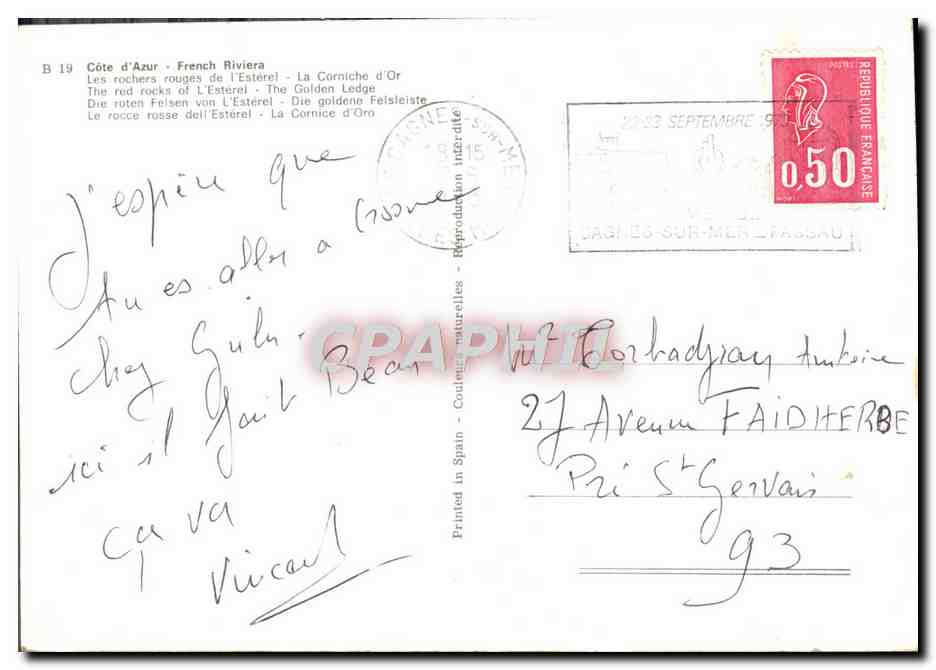 B 19 Côte d'Azur - French Riviera
Les rochers rouges de l'Estérel - La Corniche d'Or
The red rocks of L'Estérel - The Golden Ledge
Die roten Felsen von L'Estérel - Die goldene Felsleiste
Le rocce rosse dell'Estérel - La Cornice d'Oro
J'espère que
tu es aller a
chez
ici il fait Beau
ça va
Vincent
Printed in Spain - Couleurs naturelles - Reproduction interdite
CAGNES-SUR-MER
22-23 SEPTEMBRE 1973
CAGNES-SUR-MER - PASSAU
POSTES
REPUBLIQUE FRANÇAISE
0,50
CPAPHIL
Mr Torbadjian Antoine
27 Avenue FAIDHERBE
Pré St Gervais
93